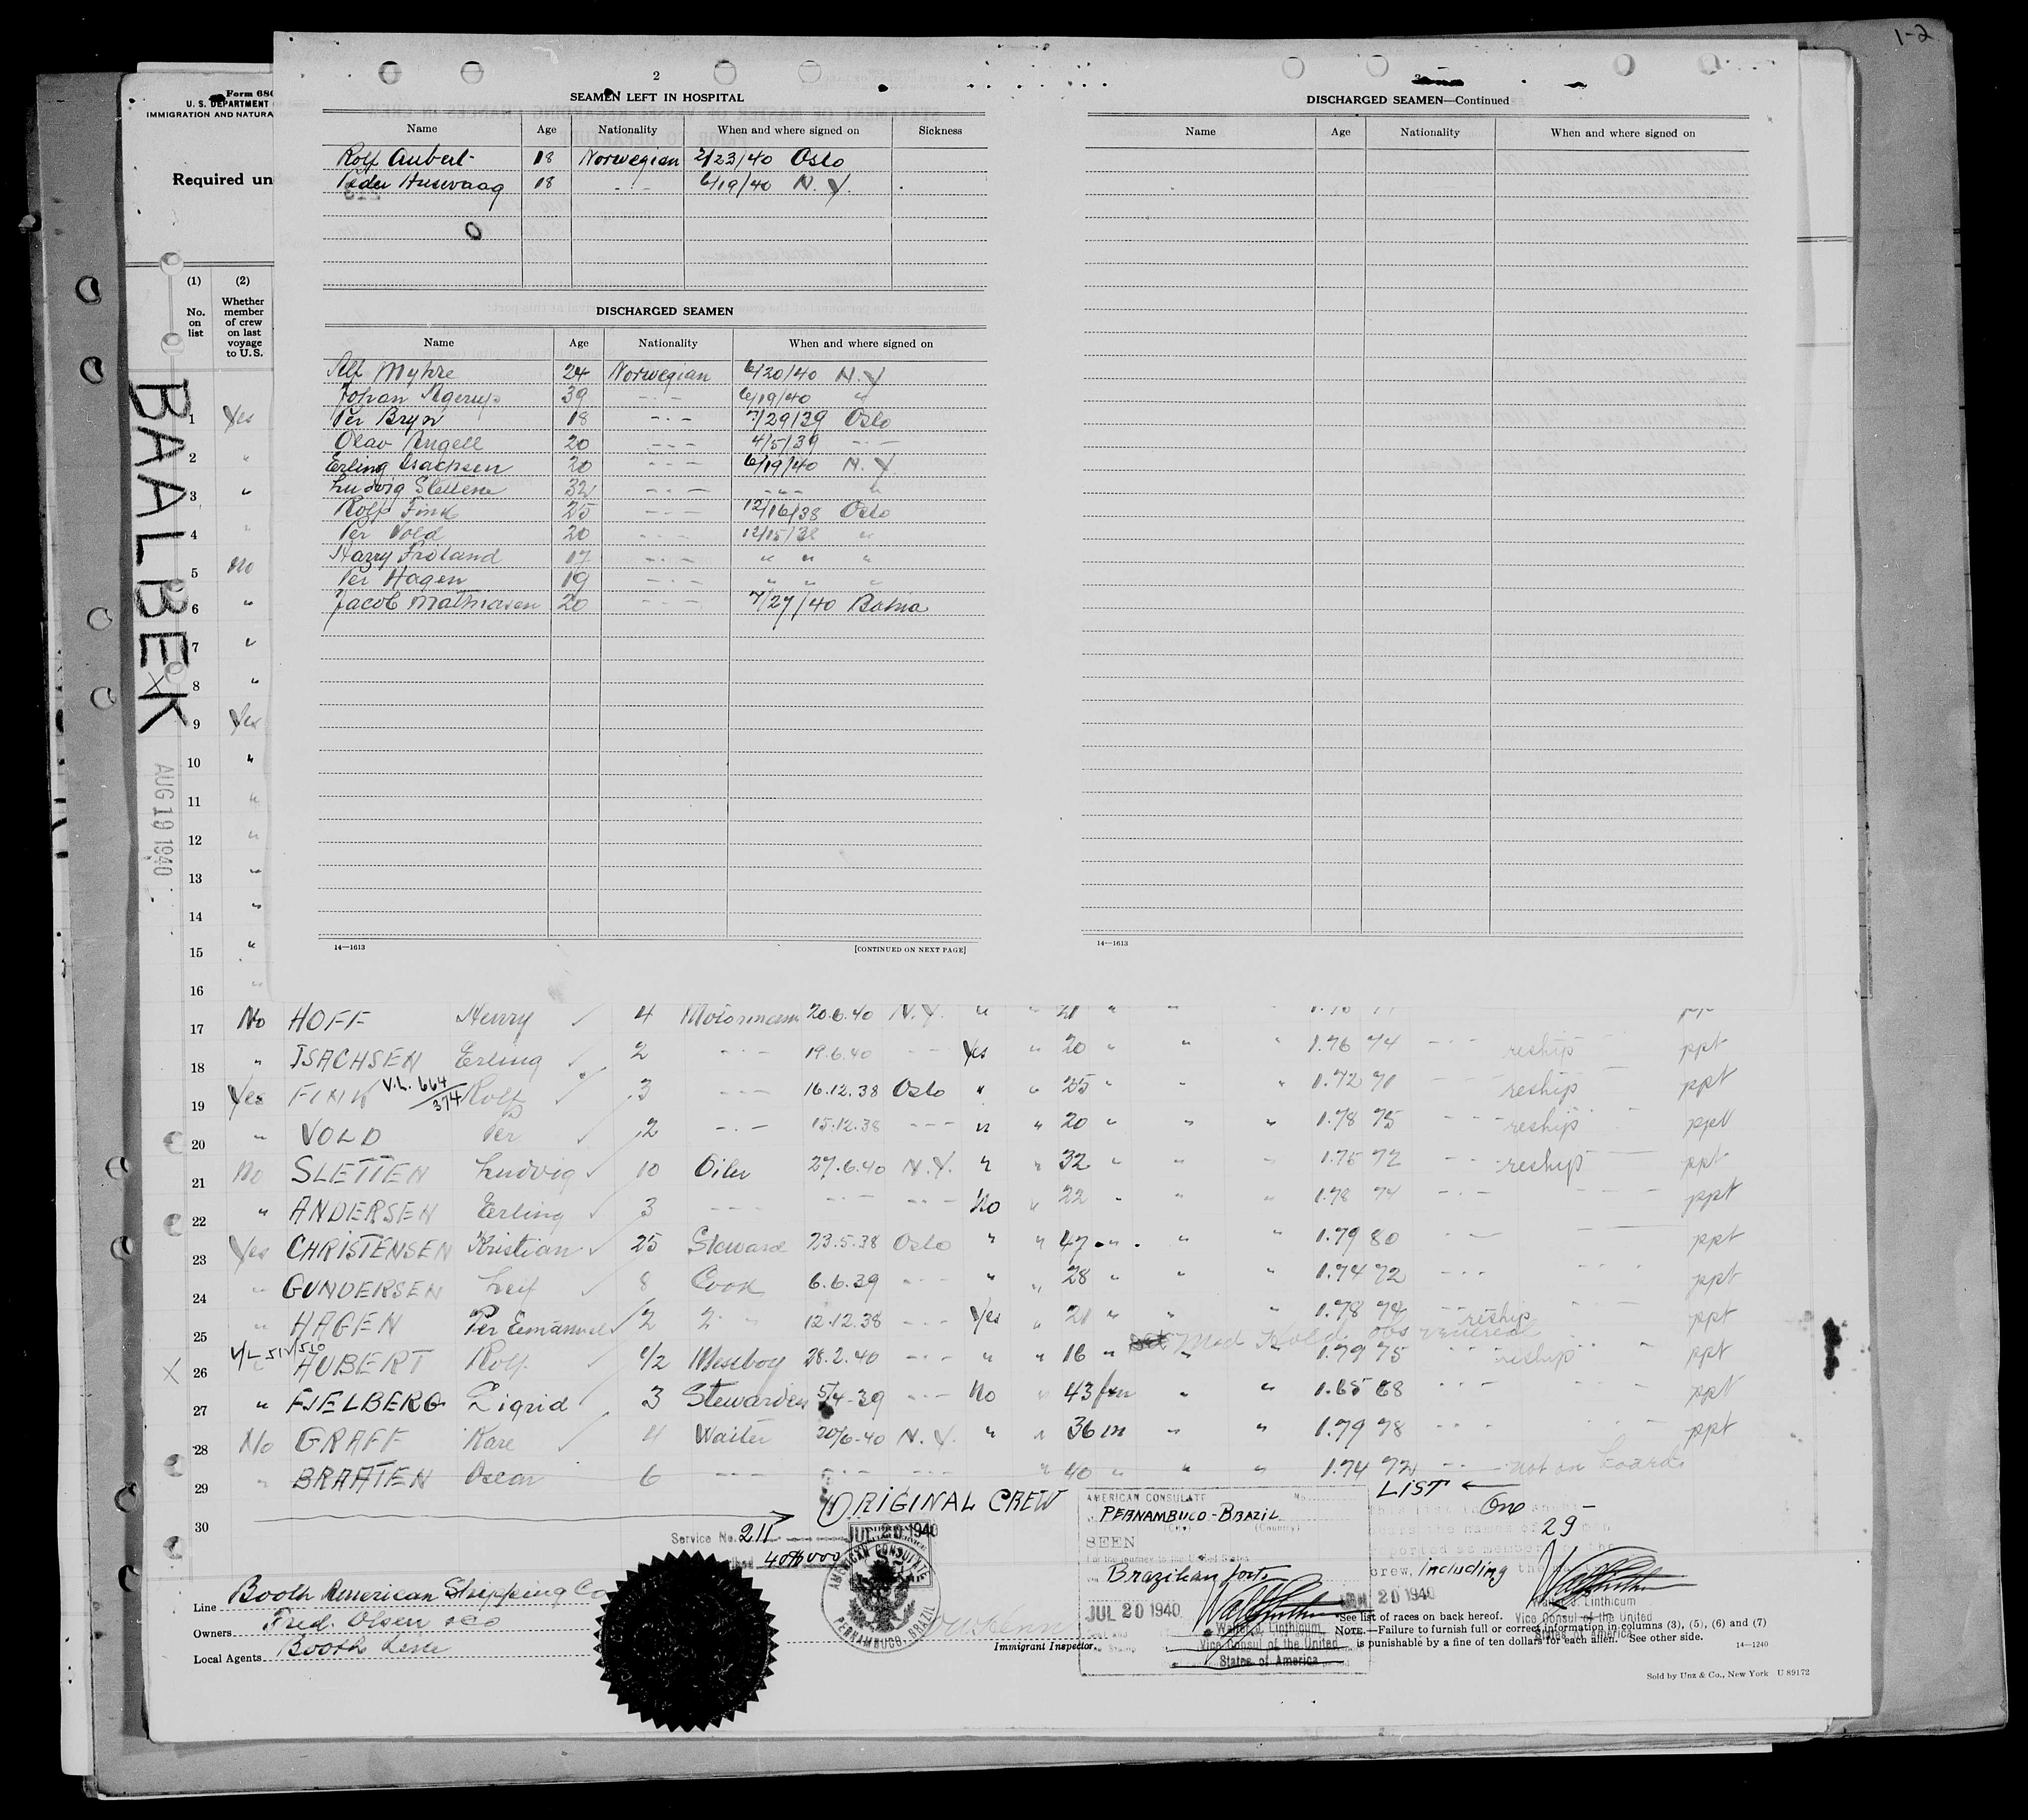 1-2
Form 680
U. S. DEPARTMENT
IMMIGRATION AND NATURA
Required un
(1) (2)
No. on list
Whether member of crew on last voyage to U. S.
BAALBEK
AUG 19 1940
1 Yes
2 "
3 "
4 "
5 No
6 "
7 "
8 "
9 Yes
10 "
11 "
12 "
13 "
14 "
15 "
16 "
2
SEAMEN LEFT IN HOSPITAL
Name Age Nationality When and where signed on Sickness
Rolf Aubert 18 Norwegian 2/23/40 Oslo
Peder Husvaag 18 -·- 6/19/40 N.Y.
DISCHARGED SEAMEN
Name Age Nationality When and where signed on
Alf Myhre 24 Norwegian 6/20/40 N.Y
Johan Agerup 39 -·- 6/19/40 "
Per Bryn 18 -·- 7/29/39 Oslo
Olav Angell 20 -·- 4/5/39 -·-
Erling Isachsen 20 -·- 6/19/40 N.Y
Ludvig Slettene 32 -·- -·- "
Rolf Fink 25 -·- 12/16/38 Oslo
Per Vold 20 -·- 12/15/38 "
Harry Froland 17 -·- " " "
Per Hagen 19 -·- " " "
Jacob Mathiasen 20 -·- 7/27/40 Bahia
14—1613 [CONTINUED ON NEXT PAGE]
DISCHARGED SEAMEN—Continued
Name Age Nationality When and where signed on
14—1613
17 No HOFF Henry 4 Motorman 20.6.40 N.Y. " " 21 " " "
18 " ISACHSEN Erling 2 -·- 19.6.40 -·- Yes " 20 " " " 1.76 74 -·- reship ppt
19 Yes FINK V.L. 664/374 Rolf 3 -·- 16.12.38 Oslo " " 25 " " " 1.72 71 -·- reship ppt
20 " VOLD Per 2 -·- 15.12.38 -·- " " 20 " " " 1.78 75 -·- reship ppt
21 No SLETTEN Ludvig 10 Oiler 27.6.40 N.Y. " " 32 " " " 1.75 72 -·- reship ppt
22 " ANDERSEN Erling 3 -·- -·- -·- No " 22 " " " 1.78 74 -·- ppt
23 Yes CHRISTENSEN Kristian 25 Steward 23.5.38 Oslo " " 47 " " " 1.79 80 -·- ppt
24 " GUNDERSEN Leif 8 Cook 6.6.39 -·- " " 28 " " " 1.74 72 -·- ppt
25 " HAGEN Per Emanuel 2 2. " 12.12.38 -·- Yes " 21 " " " 1.78 74 -·- reship ppt
Med Hold obs venereal
X 26 V/L 511/550 AUBERT Rolf 1/2 Messboy 28.2.40 -·- " " 18 " " " 1.79 75 -·- reship ppt
27 " FJELBERG Sigrid 3 Stewardess 5/4-39 -·- No " 43 fm " " 1.65 68 -·- ppt
28 No GRAFF Kare 4 Waiter 20/6-40 N.Y. " " 36 m " " 1.79 78 -·- ppt
29 " BRAATEN Oscar 6 -·- -·- -·- " 40 " " " 1.74 72 -·- not on board
30
ORIGINAL CREW LIST
Service No. 211
40$000
JUL 20 1940
AMERICAN CONSULATE
PERNAMBUCO, BRAZIL
AMERICAN CONSULATE No.
PERNAMBUCO - BRAZIL
(City) (Country)
SEEN
For the journey to the United States
via Brazilian ports
JUL 20 1940
Walter J. Linthicum
Vice Consul of the United
States of America
One
29
crew, including the
JUL 20 1940
Walter J. Linthicum
Vice Consul of the United
States of America
Line Booth American Shipping Co
Owners Fred. Olsen & Co
Local Agents Booth Line
Immigrant Inspector.
*See list of races on back hereof.
NOTE.—Failure to furnish full or correct information in columns (3), (5), (6) and (7)
is punishable by a fine of ten dollars for each alien. See other side.
14—1240
Sold by Unz & Co., New York U 89172